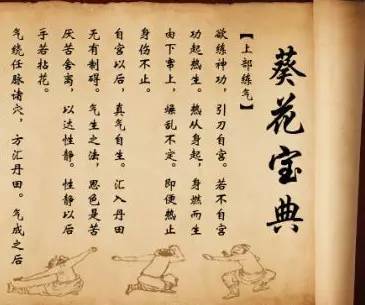 葵花宝典
【上部练气】
欲练神功，引刀自宫。若不自宫
功起热生。热从身起，身燃而生
由下窜上，燥乱不定。即便热止
身伤不止。
自宫以后，真气自生。汇入丹田
无有制碍。气生之法，思色是苦
厌苦舍离，以达性静。性静以后
手若拈花。
气绕任脉诸穴，方汇丹田。气成之后